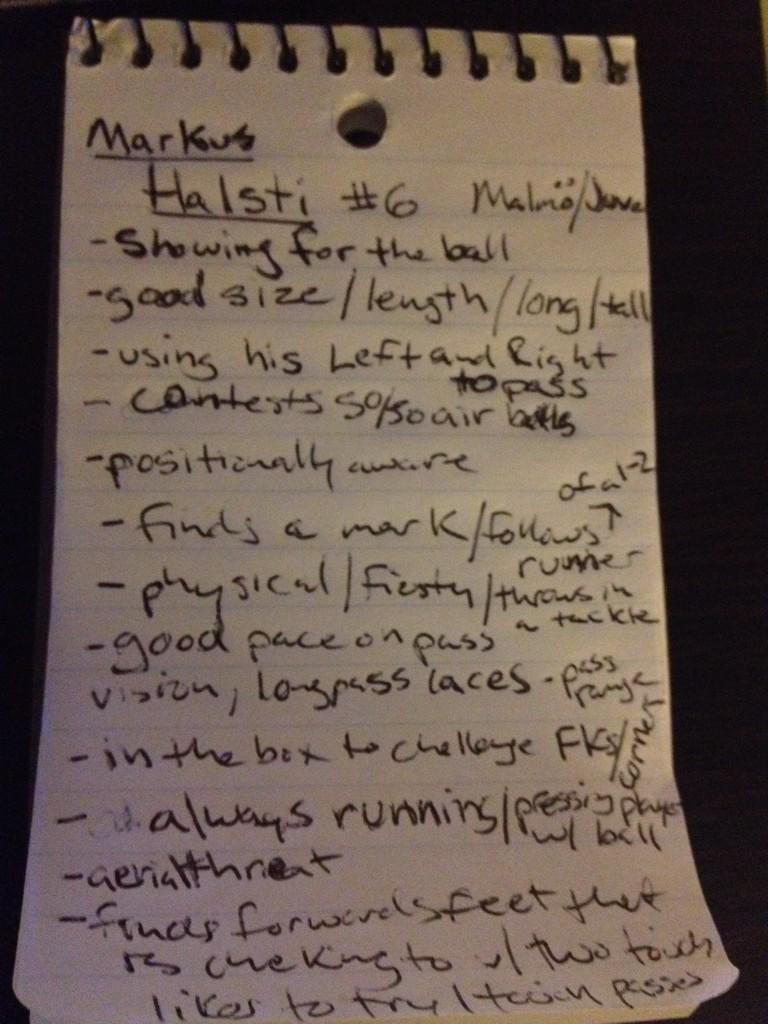 Markus
Halsti #6 Malmö/Juve
- Showing for the ball
- good size/length/long/tall
- using his Left and Right
to pass
- Contests 50/50 air balls
- positionally aware
of a 1-2
- finds a mark/follows ↑
runner
- physical/fiesty/throws in
a tackle
- good pace on pass
vision, long pass laces - pass
range
- in the box to challenge FKs/
corners
- always running/pressing player
w/ ball
- aerial threat
- finds forwards feet that
is cheking to w/ two touch
likes to try 1 touch passes